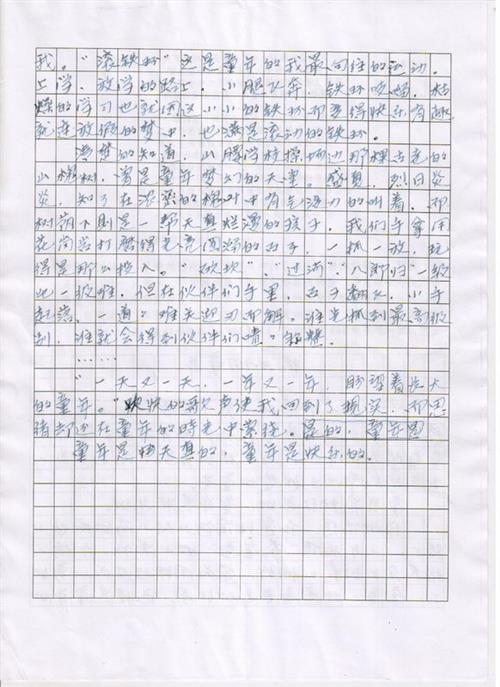 我。"滚铁环"这是童年的我最向往的运动。
上学、放学的路上,小腿飞奔,铁环吱鸣,枯
燥的学习也就因这小小的铁环而变得快乐有趣,
就连放假的梦中,也满是滚动的铁环。
的知道,山腰学校操场边那棵古老的
山楸树,曾是童年梦幻的天堂。盛夏,烈日炎
炎,知了在浓密的楸叶中有气没力的叫着,而
树荫下则是一帮天真烂漫的孩子,我们手拿用
打磨得光亮圆滑的石子,一抓一放,玩
得是那么投入。"砍坎"、"过河"、"八郎归"一级
比一级难,但在伙伴们手里,石子翻飞,小手
起落,一道道难关迎刃而解。谁先抓到最高级
别,谁就会得到伙伴们啧啧称赞。
……
"一天又一天,一年又一年,盼望着长大
的童年。"欢快的歌声使我回到了现实,而思
绪却仍在童年的时光中萦绕。是的,童年是
童年是天真的,童年是快乐的。